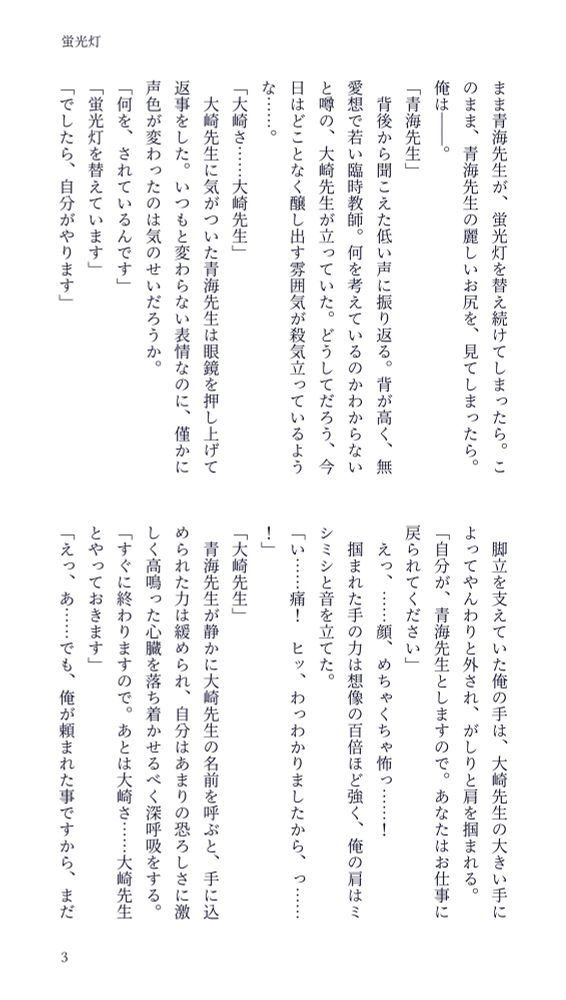 蛍光灯
まま青海先生が、蛍光灯を替え続けてしまったら。こ
のまま、青海先生の麗しいお尻を、見てしまったら。
俺は――。
「青海先生」
　背後から聞こえた低い声に振り返る。背が高く、無
愛想で若い臨時教師。何を考えているのかわからない
と噂の、大崎先生が立っていた。どうしてだろう、今
日はどことなく醸し出す雰囲気が殺気立っているよう
な……。
「大崎さ……大崎先生」
　大崎先生に気がついた青海先生は眼鏡を押し上げて
返事をした。いつもと変わらない表情なのに、僅かに
声色が変わったのは気のせいだろうか。
「何を、されているんです」
「蛍光灯を替えています」
「でしたら、自分がやります」
　脚立を支えていた俺の手は、大崎先生の大きい手に
よってやんわりと外され、がしりと肩を掴まれる。
「自分が、青海先生としますので。あなたはお仕事に
戻られてください」
　えっ、……顔、めちゃくちゃ怖っ……！
　掴まれた手の力は想像の百倍ほど強く、俺の肩はミ
シミシと音を立てた。
「い……痛！　ヒッ、わっわかりましたから、っ……
！」
「大崎先生」
　青海先生が静かに大崎先生の名前を呼ぶと、手に込
められた力は緩められ、自分はあまりの恐ろしさに激
しく高鳴った心臓を落ち着かせるべく深呼吸をする。
「すぐに終わりますので。あとは大崎さ……大崎先生
とやっておきます」
「えっ、あ……でも、俺が頼まれた事ですから、まだ
3